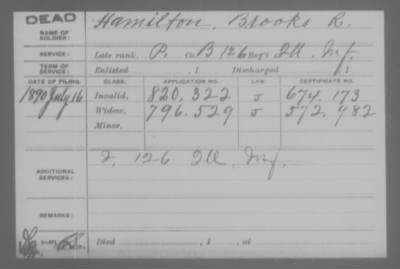 DEAD
NAME OF SOLDIER: Hamilton, Brooks R.
SERVICE: Late rank, P. Co. B 126 Reg't Ill. Inf.
TERM OF SERVICE: Enlisted , 1 Discharged , 1
DATE OF FILING. CLASS. APPLICATION NO. LAW. CERTIFICATE NO.
1890 July 16 Invalid, 820.322 J 674.173
Widow, 796.529 J 572.982
Minor,
ADDITIONAL SERVICES: I, 126 Ill. Inf.
REMARKS:
Died , 1 , at